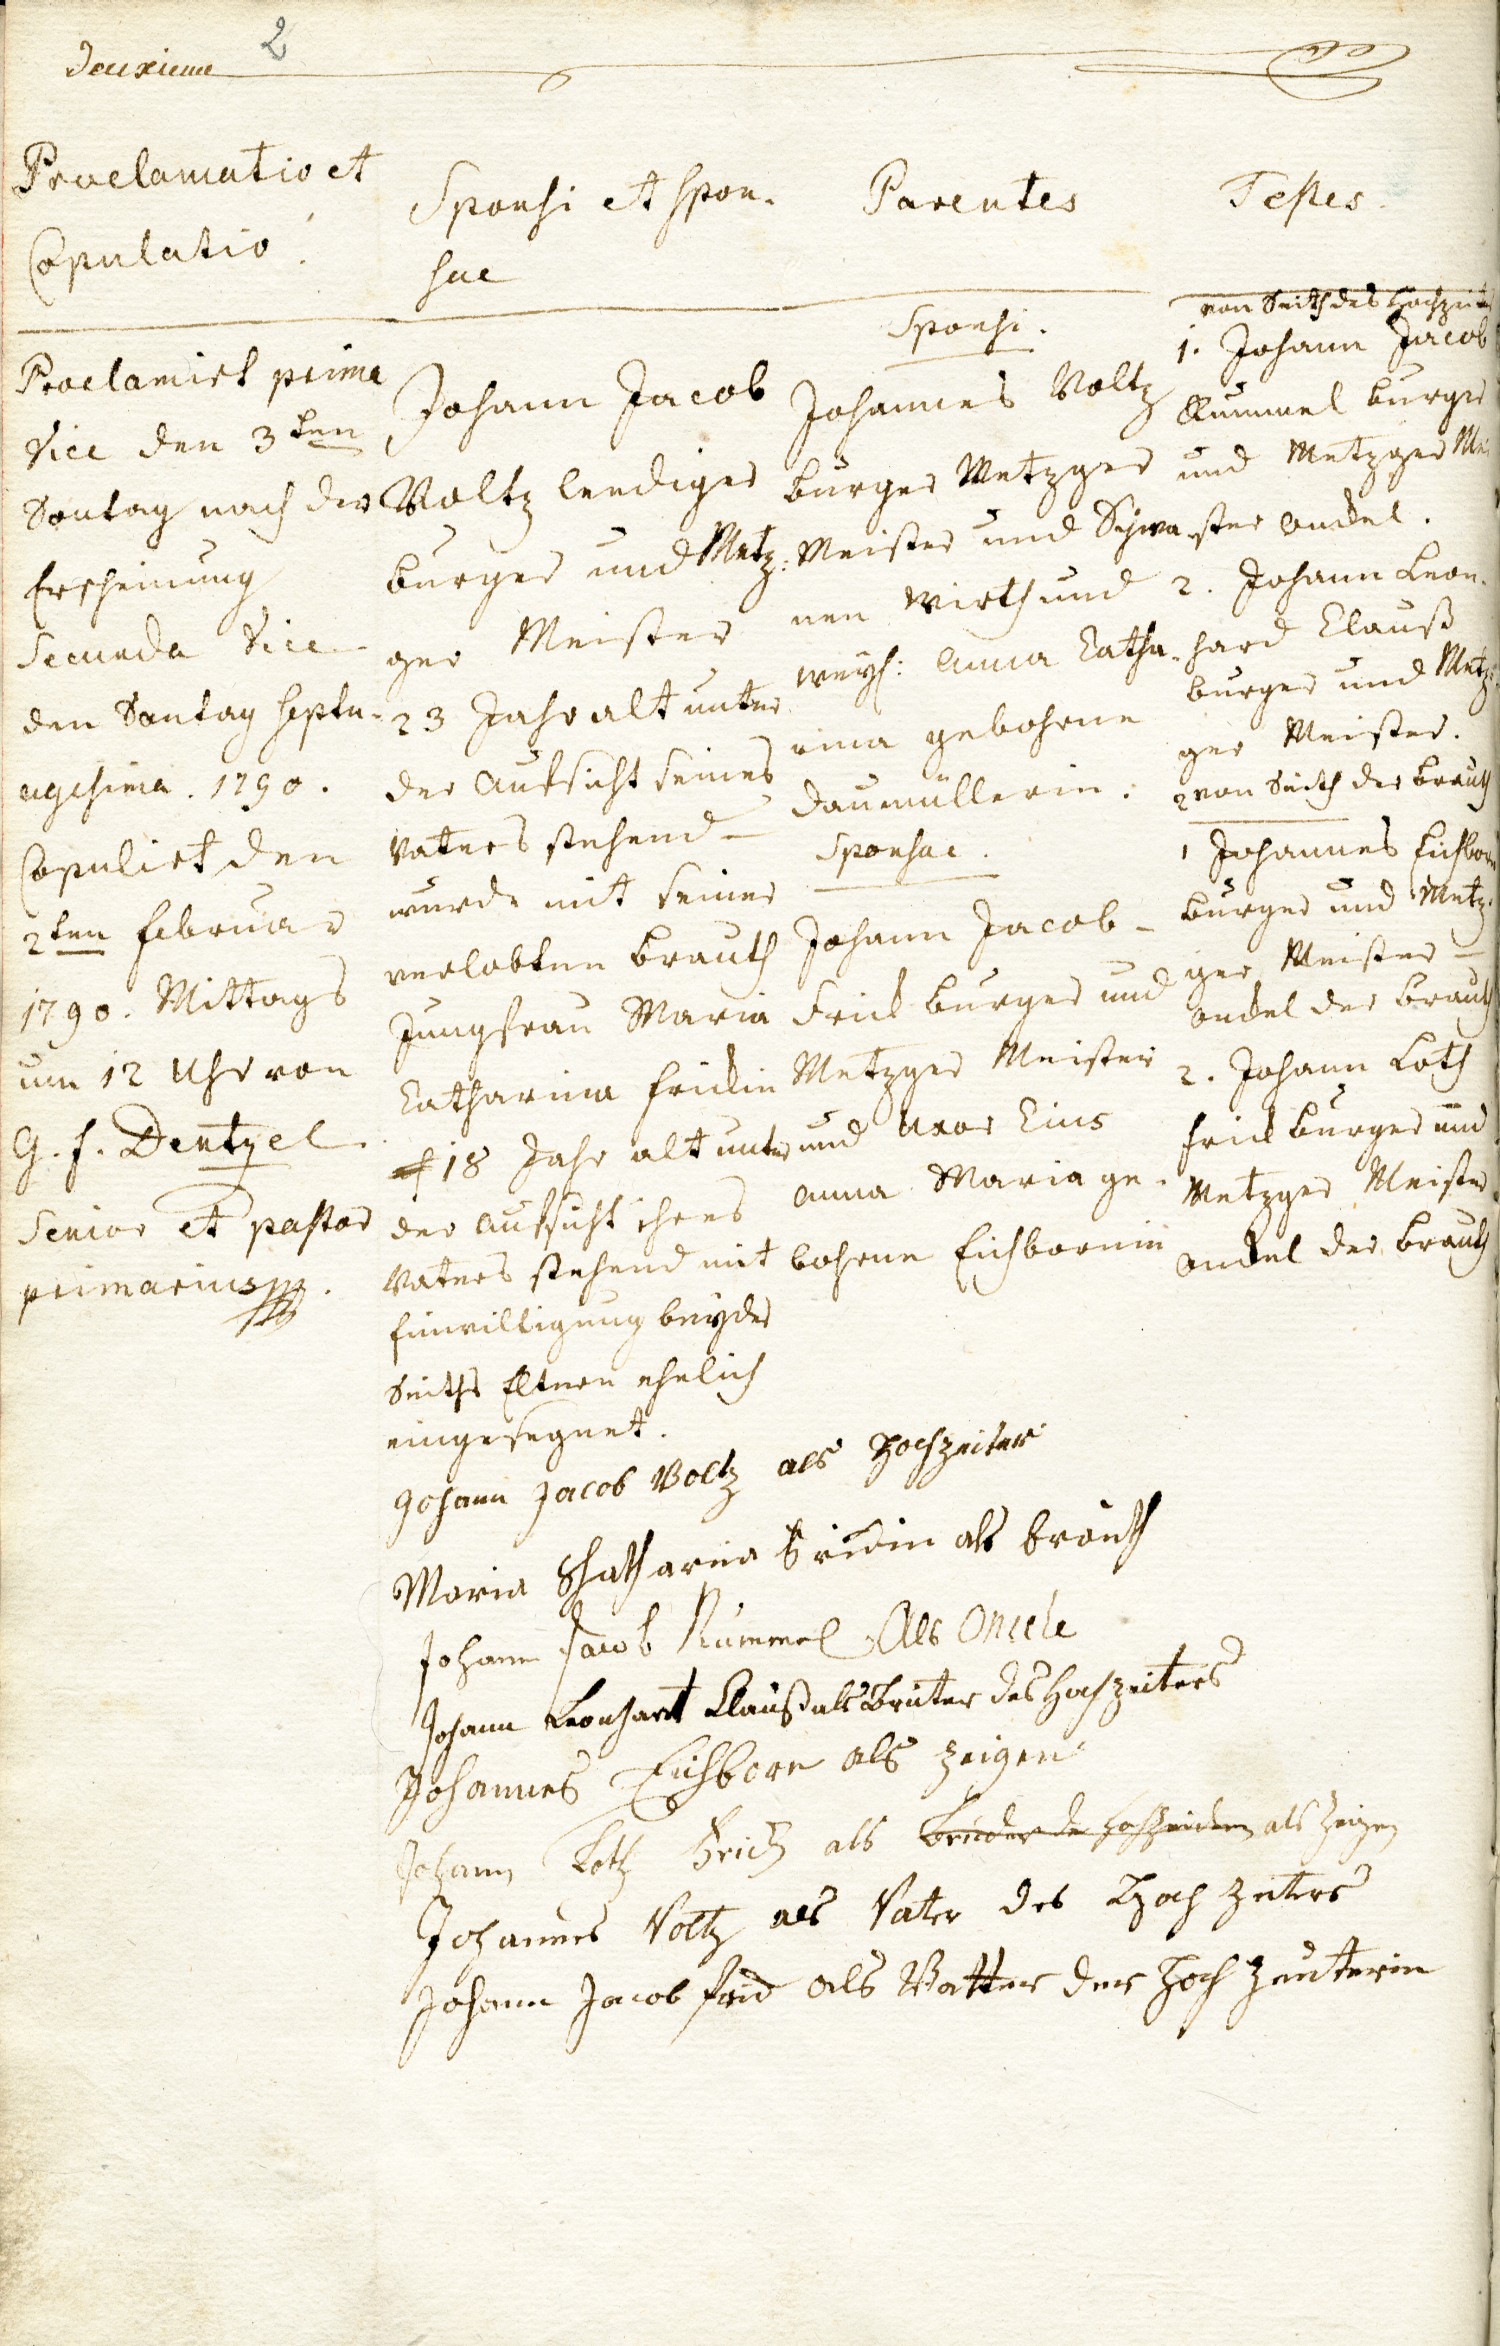 Deuxieme 2
Proclamatio et
Copulatio.
Proclamirt prima
Vice den 3ten
Sontag nach der
Erscheinung
Secunda Vice
den Sontag Septu-
agesima. 1790.
Copulirt den
2ten Februar
1790. Mittags
um 12 Uhr von
G. F. Dentzel
Senior et pastor
primarius
Sponsi et Spon-
sae
Johann Jacob
Voltz lendiger
burger und Metz:
ger Meister
23 Jahr alt unter
der Aufsicht seines
Vaters stehend
wurde mit seiner
verlobten Brauth
Jungfrau Maria
Catharina Frickin
18 Jahr alt unter
der Aufsicht ihres
Vaters stehend mit
Einwilligung beyder
Seiths Eltern ehelich
eingesegnet.
Parentes
Sponsi.
Johannes Voltz
burger Metzger
Meister und Schwa-
nen Wirth und
weyl: Anna Catha-
rina gebohrne
Daumüllerin.
Sponsae.
Johann Jacob
Frick burger und
Metzger Meister
und Uxor Eius
Anna Maria ge-
bohrne Eichbornin
Testes.
von Seith des Hochzeit
1. Johann Jacob
Rummel burger
und Metzger Mei
ster onckel.
2. Johann Leon-
hard Clauß
burger und Metz:
ger Meister.
2 von Seith der Brauth
1 Johannes Eichborn
burger und Metz-
ger Meister
onckel der Brauth
2. Johann Loth
Frick burger und
Metzger Meister
onckel der Brauth
Johann Jacob Voltz als Hochzeiter
Maria Chatharina Frickin als Brauth
Johann Jacob Rummel Als Oncele
Johann Leonhart Clauß als Bruter des Hochzeiters
Johannes Eichborn als Zeigen
Johann Loth Frick als Bruder de Hochzeiden als Zeigen
Johannes Voltz als Vater des Hoch Zeiters
Johann Jacob Frick als Vatter der Hoch Zeuterin